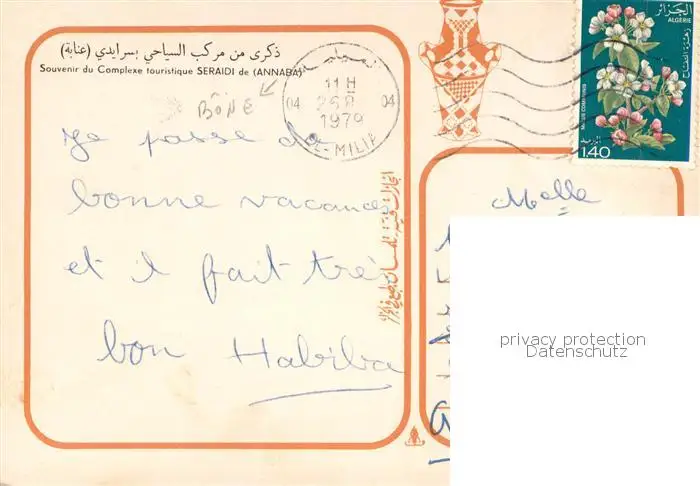 ذكرى من مركب السياحي بسرايدي (عنابة)
Souvenir du Complexe touristique SERAIDI de (ANNABA)
BÔNE
11 H
04 04
1979
EL-MILIA
الجزائر
ALGERIE
MALUS COMMUNIS
1.40
Je passe de
bonne vacances
et il fait très
bon Habiba
Melle
privacy protection
Datenschutz